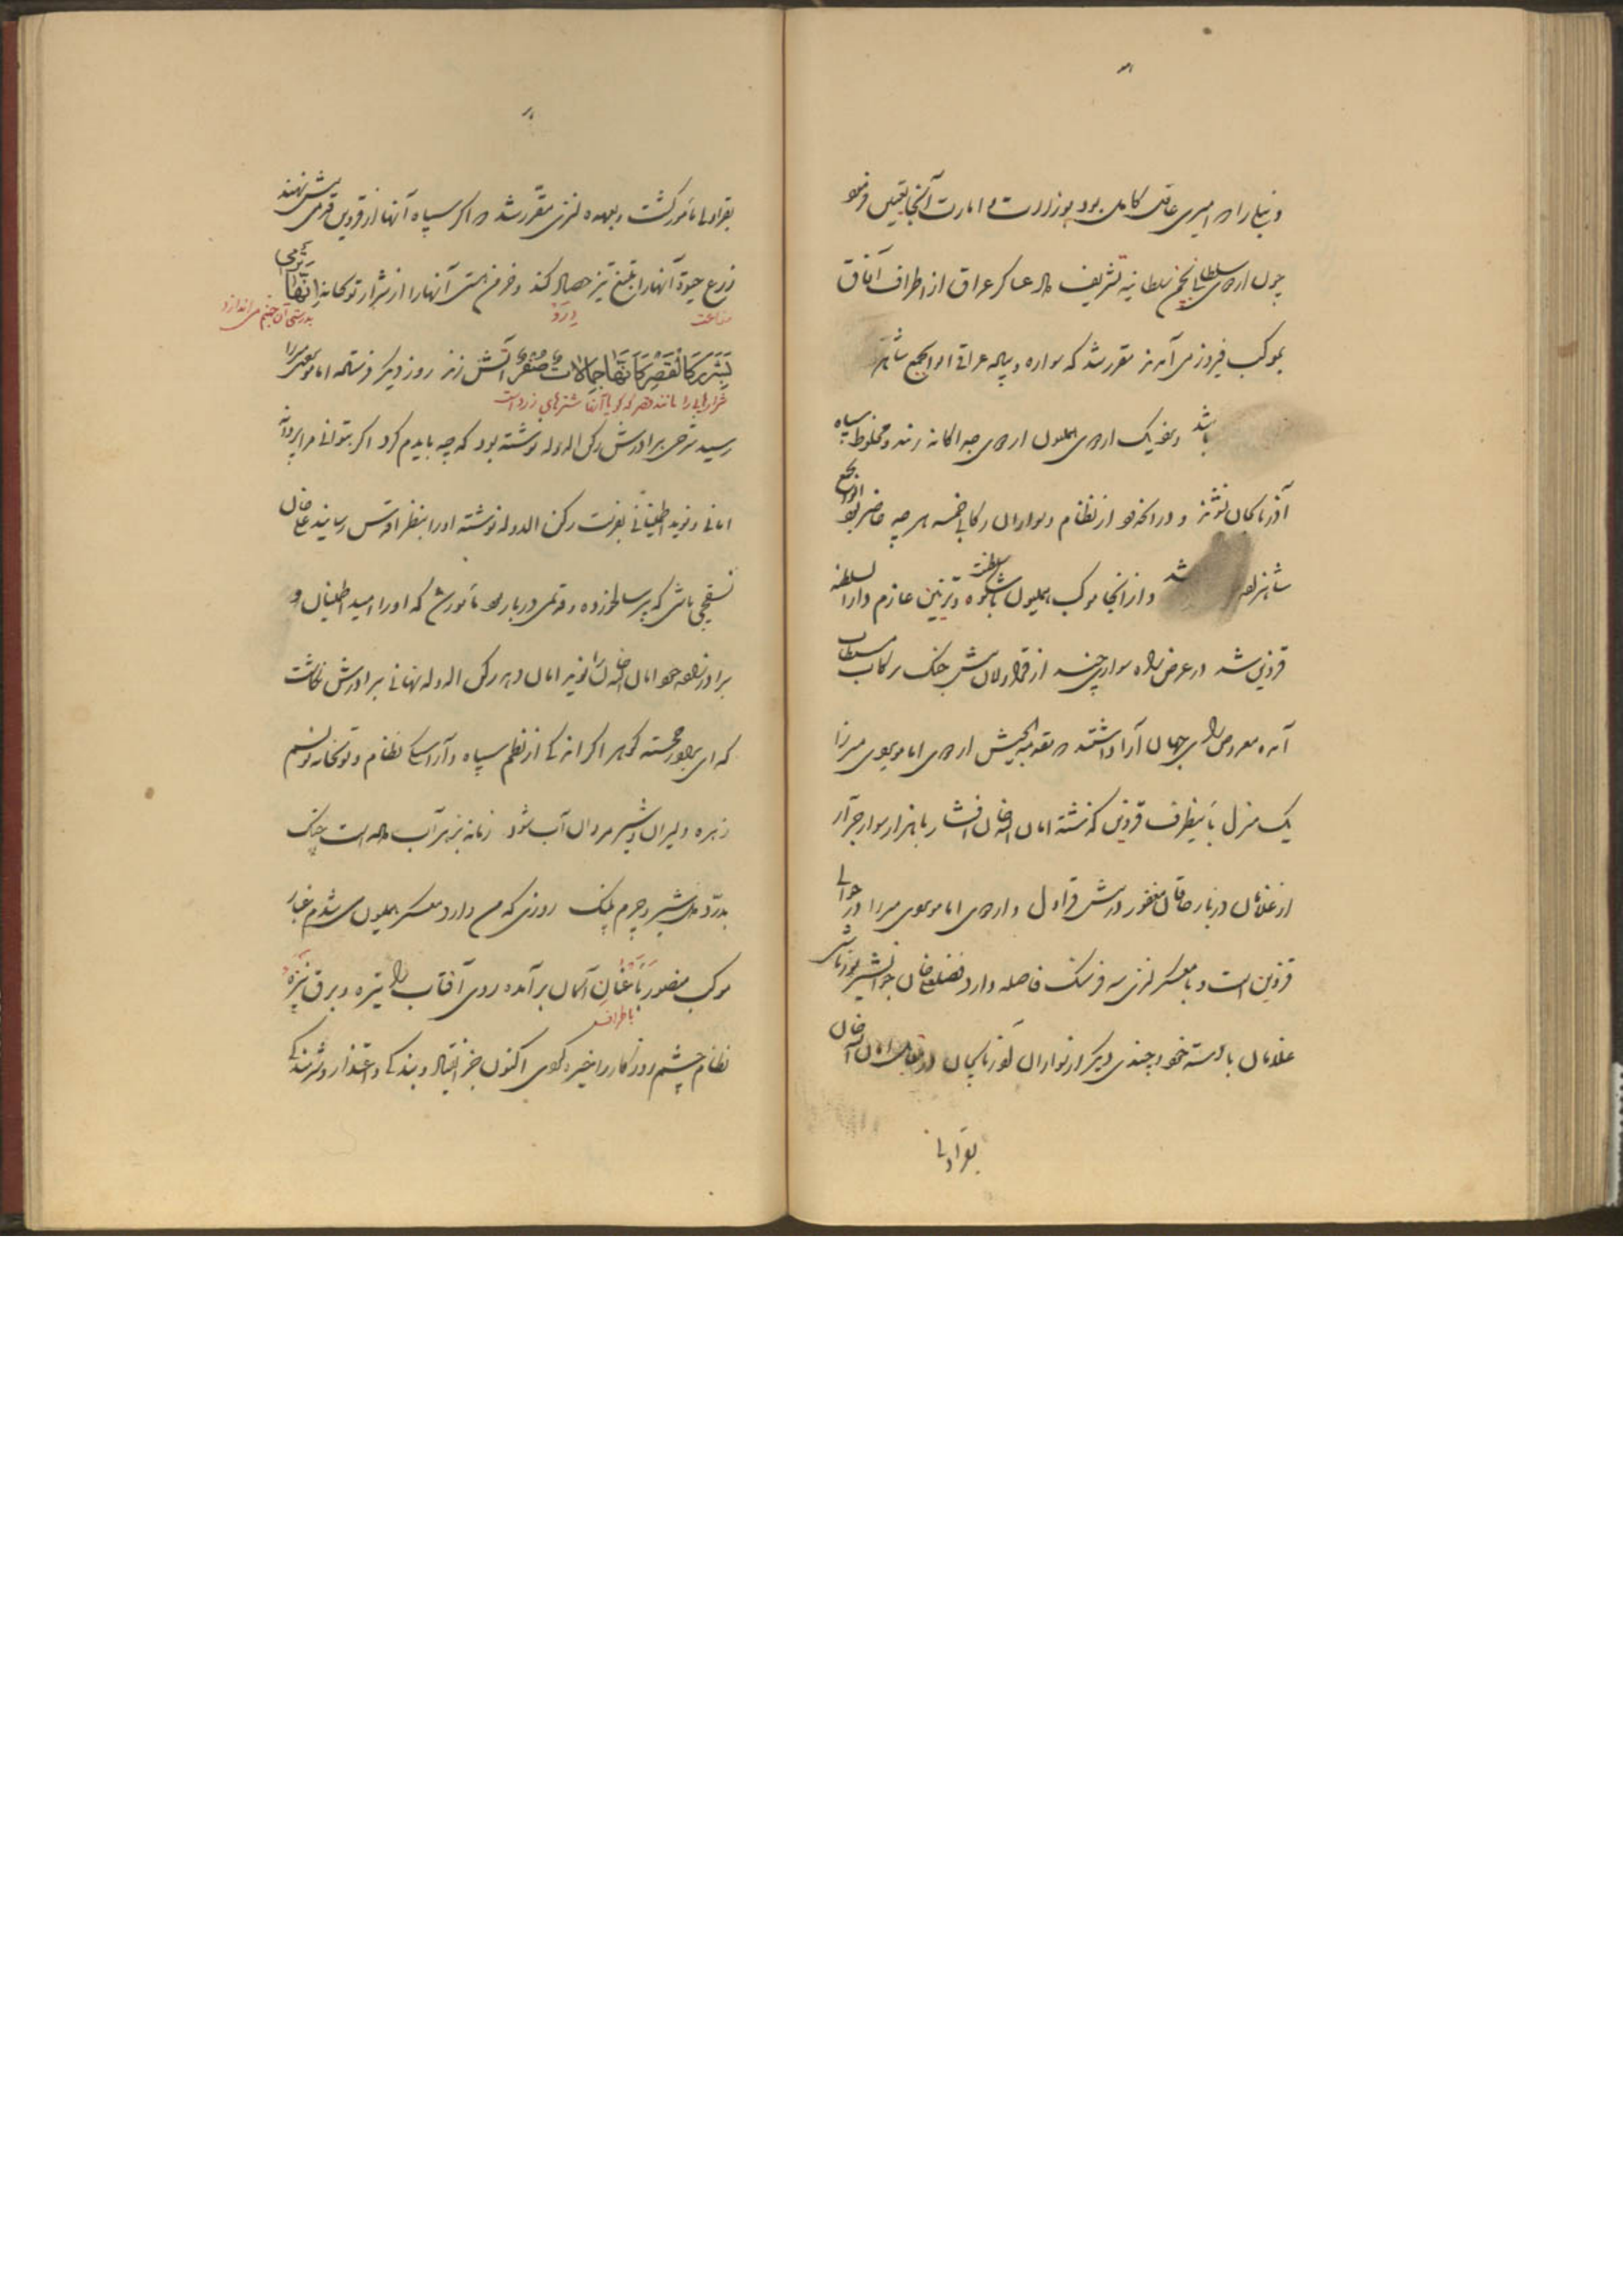 و نیابرا که امیری عاقل کامل بود بوزارت و امارت آنجا تعیین فرمود
چون اردوی سلطانی بخیم سلطانیه تشریف داد عساکر عراق از اطراف آفاق
بموکب فیروز می آمدند مقرر شد که سواره و پیاده عراقی ابوابجمع شاهزاده
باشد و نزدیک اردوی همایون اردوی جداگانه زنند و مخلوط بسپاه
آذربایجان نشوند و در آنجه نو از نظام و سواران رکابی خمسه هر چه حاضر بود ابوابجمع
شاهزاده شد و از آنجا موکب همایون باشکوه سلطنت و تزیین عازم دارالسلطنه
قزوین شد در عرض راه سواری چند از قراولان پیش جنگ برکاب مستطاب
آمده معروض رای جهان آرا داشتند که مقدمة الجیش اردوی امامویردی میرزا
یک منزل باینطرف قزوین گذشته امان الله خان افشار با هزار سوار جرار
از غلامان دربار خاقان مغفور در پیش قراول و اردوی امامویردی میرزا در حوالی
قزوین است و با معسکر لنزی سه فرسنگ فاصله دارد فضلعلی خان جوانشیر یوزباشی
غلامان با دسته خود و چندی دیگر از سواران آذربایجان در مقابل امان الله خان
بقراولی
بقراولی مأمور گشت و بعهده لنزی مقرر شد که اگر سپاه آنها از قزوین قدمی پیش نهند
زرع حیوة آنها را بتیغ تیز حصاد کند و خرمن هستی آنها را از شرار توپخانه اِنَّهَا تَرْمِی
زراعت
درو
بدرستیکه آن جهنم می اندازد
بِشَرَرٍ کَالْقَصْرِ کَاَنَّهَا جِمَالَاتٌ صُفْرٌ آتش زند روز دیگر فرستاده امامویردی میرزا
شرارهایی را مانند قصر که گویا آنها شترهای زرد است
رسید شرحی ببرادرش رکن الدوله نوشته بود که چه بایدم کرد اگر بتوانی مرا پروانه
امانی و نوید اطمینانی بفرست رکن الدوله نوشته او را بنظر اقدس رسانید علیخان
نسقچی باشی که پیر سالخورده و قدیمی دربار بود مأمور شد که او را امید اطمینان دهد
برادرزاده خود امان الله خان را نیز امان دهد رکن الدوله نهانی ببرادرش نگاشت
که ای برادر خجسته گوهر اگر اندکی از نظم سپاه و آراستگی نظام و توپخانه نویسم
زهره دلیران و شیرمردان آب شود زمانه بزهر آب داده است چنگ
بدرد دل شیر و چرم پلنگ روزی که من وارد معسکر همایون می شدم غبار
موکب منصور بِاَعْنَانِ آسمان برآمده روی آفتاب را تیره و برق نیزه
باطراف
نظام چشم روزگار را خیره کردی اکنون جز انقیاد و بندگی و اعتذار و شرمندگی